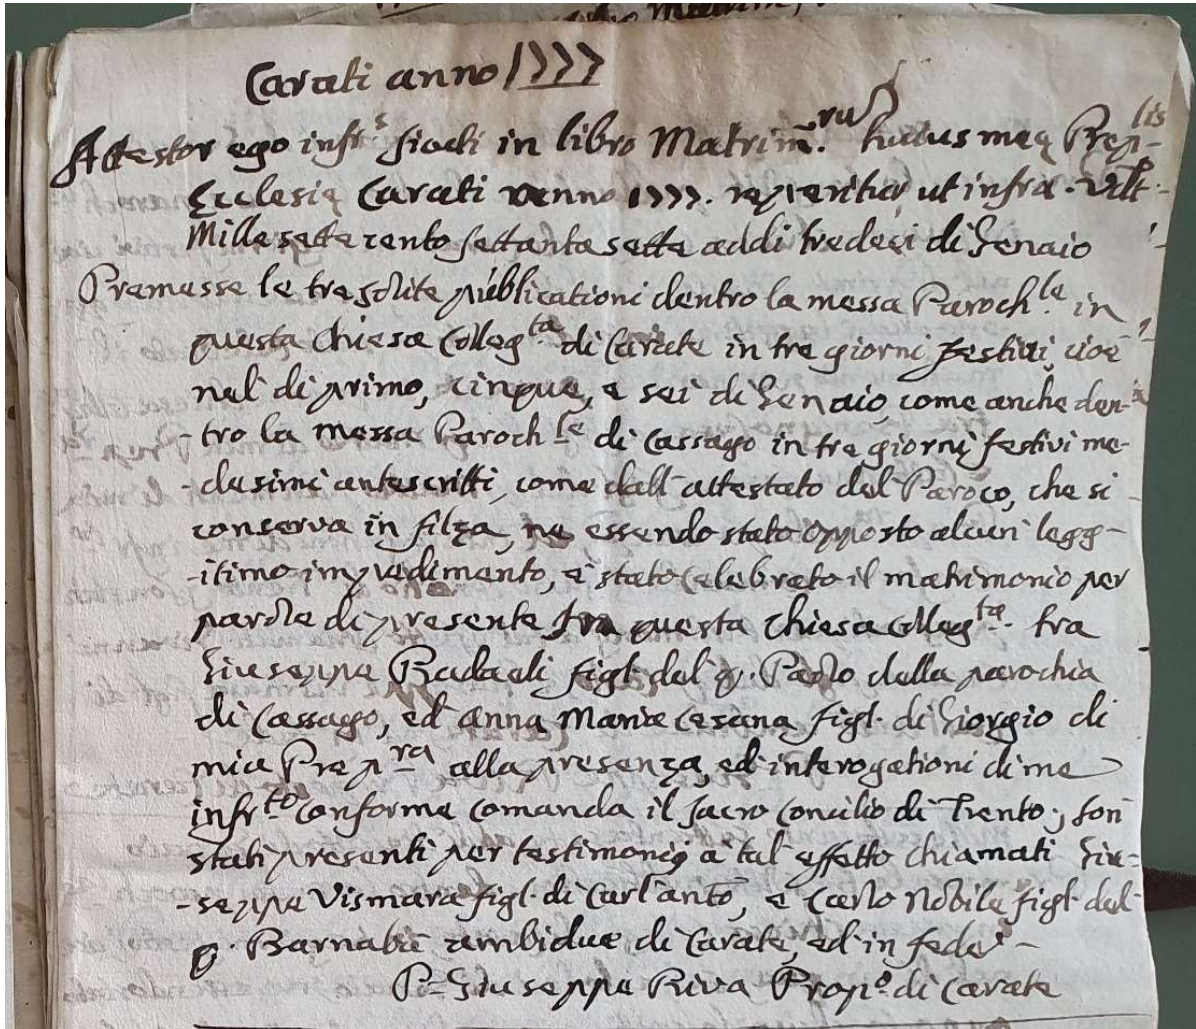 Carati anno 1777
Attestor ego infr.s sicuti in libro Matrim.rum huius meę Prep.lis
Ecclesię Carati anno 1777. reperitur ut infra. Vdlt.
Mille sette cento settanta sette addi tredeci di Genaio
Premesse le tre solite publicationi dentro la messa Paroch.le in
questa Chiesa Colleg.ta di Carate in tre giorni festivi cioè
nel dì primo, cinque, e sei di Genaio, come anche den-
-tro la messa Paroch.le di Cassago in tre giorni festivi me-
-desimi antescritti, come dall'attestato del Paroco, che si
conserva in filza, ne essendo stato opposto alcun legg-
-itimo impedimento, è stato celebrato il matrimonio per
parole di presente in questa Chiesa Colleg.ta tra
Giuseppe Radaeli figl. del q. Paolo della parochia
di Cassago, ed Anna Maria Cesana figl. di Giorgio di
mia Prep.ra alla presenza, ed interogationi di me
infr.to conforme comanda il sacro Concilio di Trento; son
stati presenti per testimonij a tal effetto chiamati Giu-
-seppe Vismara figl. di Carl'anto, e Carlo Nobile figl. del
q. Barnabà ambidue di Carate, ed in fede
P. Giuseppe Riva Prop.o di Carate